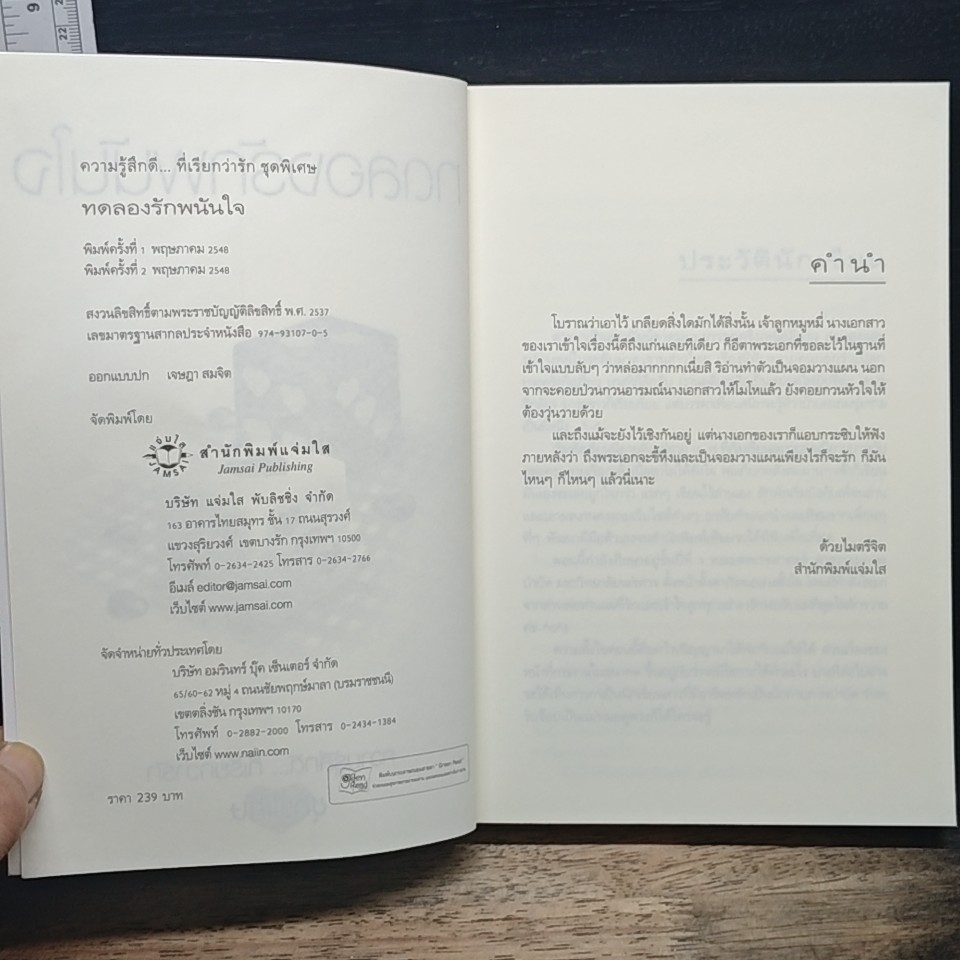 9
22
ความรู้สึกดี... ที่เรียกว่ารัก ชุดพิเศษ
ทดลองรักพนันใจ
พิมพ์ครั้งที่ 1 พฤษภาคม 2548
พิมพ์ครั้งที่ 2 พฤษภาคม 2548
สงวนลิขสิทธิ์ตามพระราชบัญญัติลิขสิทธิ์ พ.ศ. 2537
เลขมาตรฐานสากลประจำหนังสือ 974-93107-0-5
ออกแบบปก เจษฎา สมจิต
จัดพิมพ์โดย
แจ่มใส
JAMSAI
สำนักพิมพ์แจ่มใส
Jamsai Publishing
บริษัท แจ่มใส พับลิชชิ่ง จำกัด
163 อาคารไทยสมุทร ชั้น 17 ถนนสุรวงศ์
แขวงสุริยวงศ์ เขตบางรัก กรุงเทพฯ 10500
โทรศัพท์ 0-2634-2425 โทรสาร 0-2634-2766
อีเมล์ editor@jamsai.com
เว็บไซต์ www.jamsai.com
จัดจำหน่ายทั่วประเทศโดย
บริษัท อมรินทร์ บุ๊ค เซ็นเตอร์ จำกัด
65/60-62 หมู่ 4 ถนนชัยพฤกษ์มาลา (บรมราชชนนี)
เขตตลิ่งชัน กรุงเทพฯ 10170
โทรศัพท์ 0-2882-2000 โทรสาร 0-2434-1384
เว็บไซต์ www.naiin.com
Green Read
ราคา 239 บาท
คำนำ
โบราณว่าเอาไว้ เกลียดสิ่งใดมักได้สิ่งนั้น เจ้าลูกหมูหมี่ นางเอกสาว
ของเราเข้าใจเรื่องนี้ดีถึงแก่นเลยทีเดียว ก็อีตาพระเอกที่ขอละไว้ในฐานที่
เข้าใจแบบลับๆ ว่าหล่อมากกกกเนี่ยสิ ริอ่านทำตัวเป็นจอมวางแผน นอก
จากจะคอยป่วนกวนอารมณ์นางเอกสาวให้โมโหแล้ว ยังคอยกวนหัวใจให้
ต้องวุ่นวายด้วย
และถึงแม้จะยังไว้เชิงกันอยู่ แต่นางเอกของเราก็แอบกระซิบให้ฟัง
ภายหลังว่า ถึงพระเอกจะขี้หึงและเป็นจอมวางแผนเพียงไรก็จะรัก ก็มัน
ไหนๆ ก็ไหนๆ แล้วนี่เนาะ
ด้วยไมตรีจิต
สำนักพิมพ์แจ่มใส